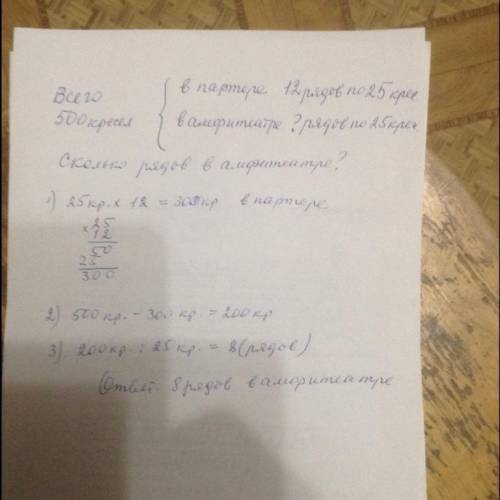 Всего { в партере 12 рядов по 25 крес
500 кресел { в амфитеатре ? рядов по 25 крес
Сколько рядов в амфитеатре?
1) 25 кр. х 12 = 300 кр в партере
х 25
12
50
25
300
2) 500 кр. - 300 кр. = 200 кр
3) 200 кр : 25 кр. = 8 (рядов)
(Ответ 8 рядов в амфитеатре